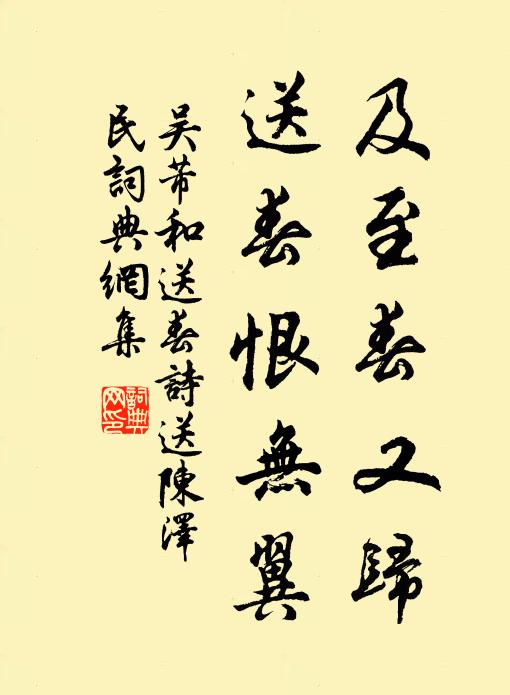 及至春又歸
送春恨無翼
吳芾和送春詩送陳澤
民詞典網集
詞典
网印